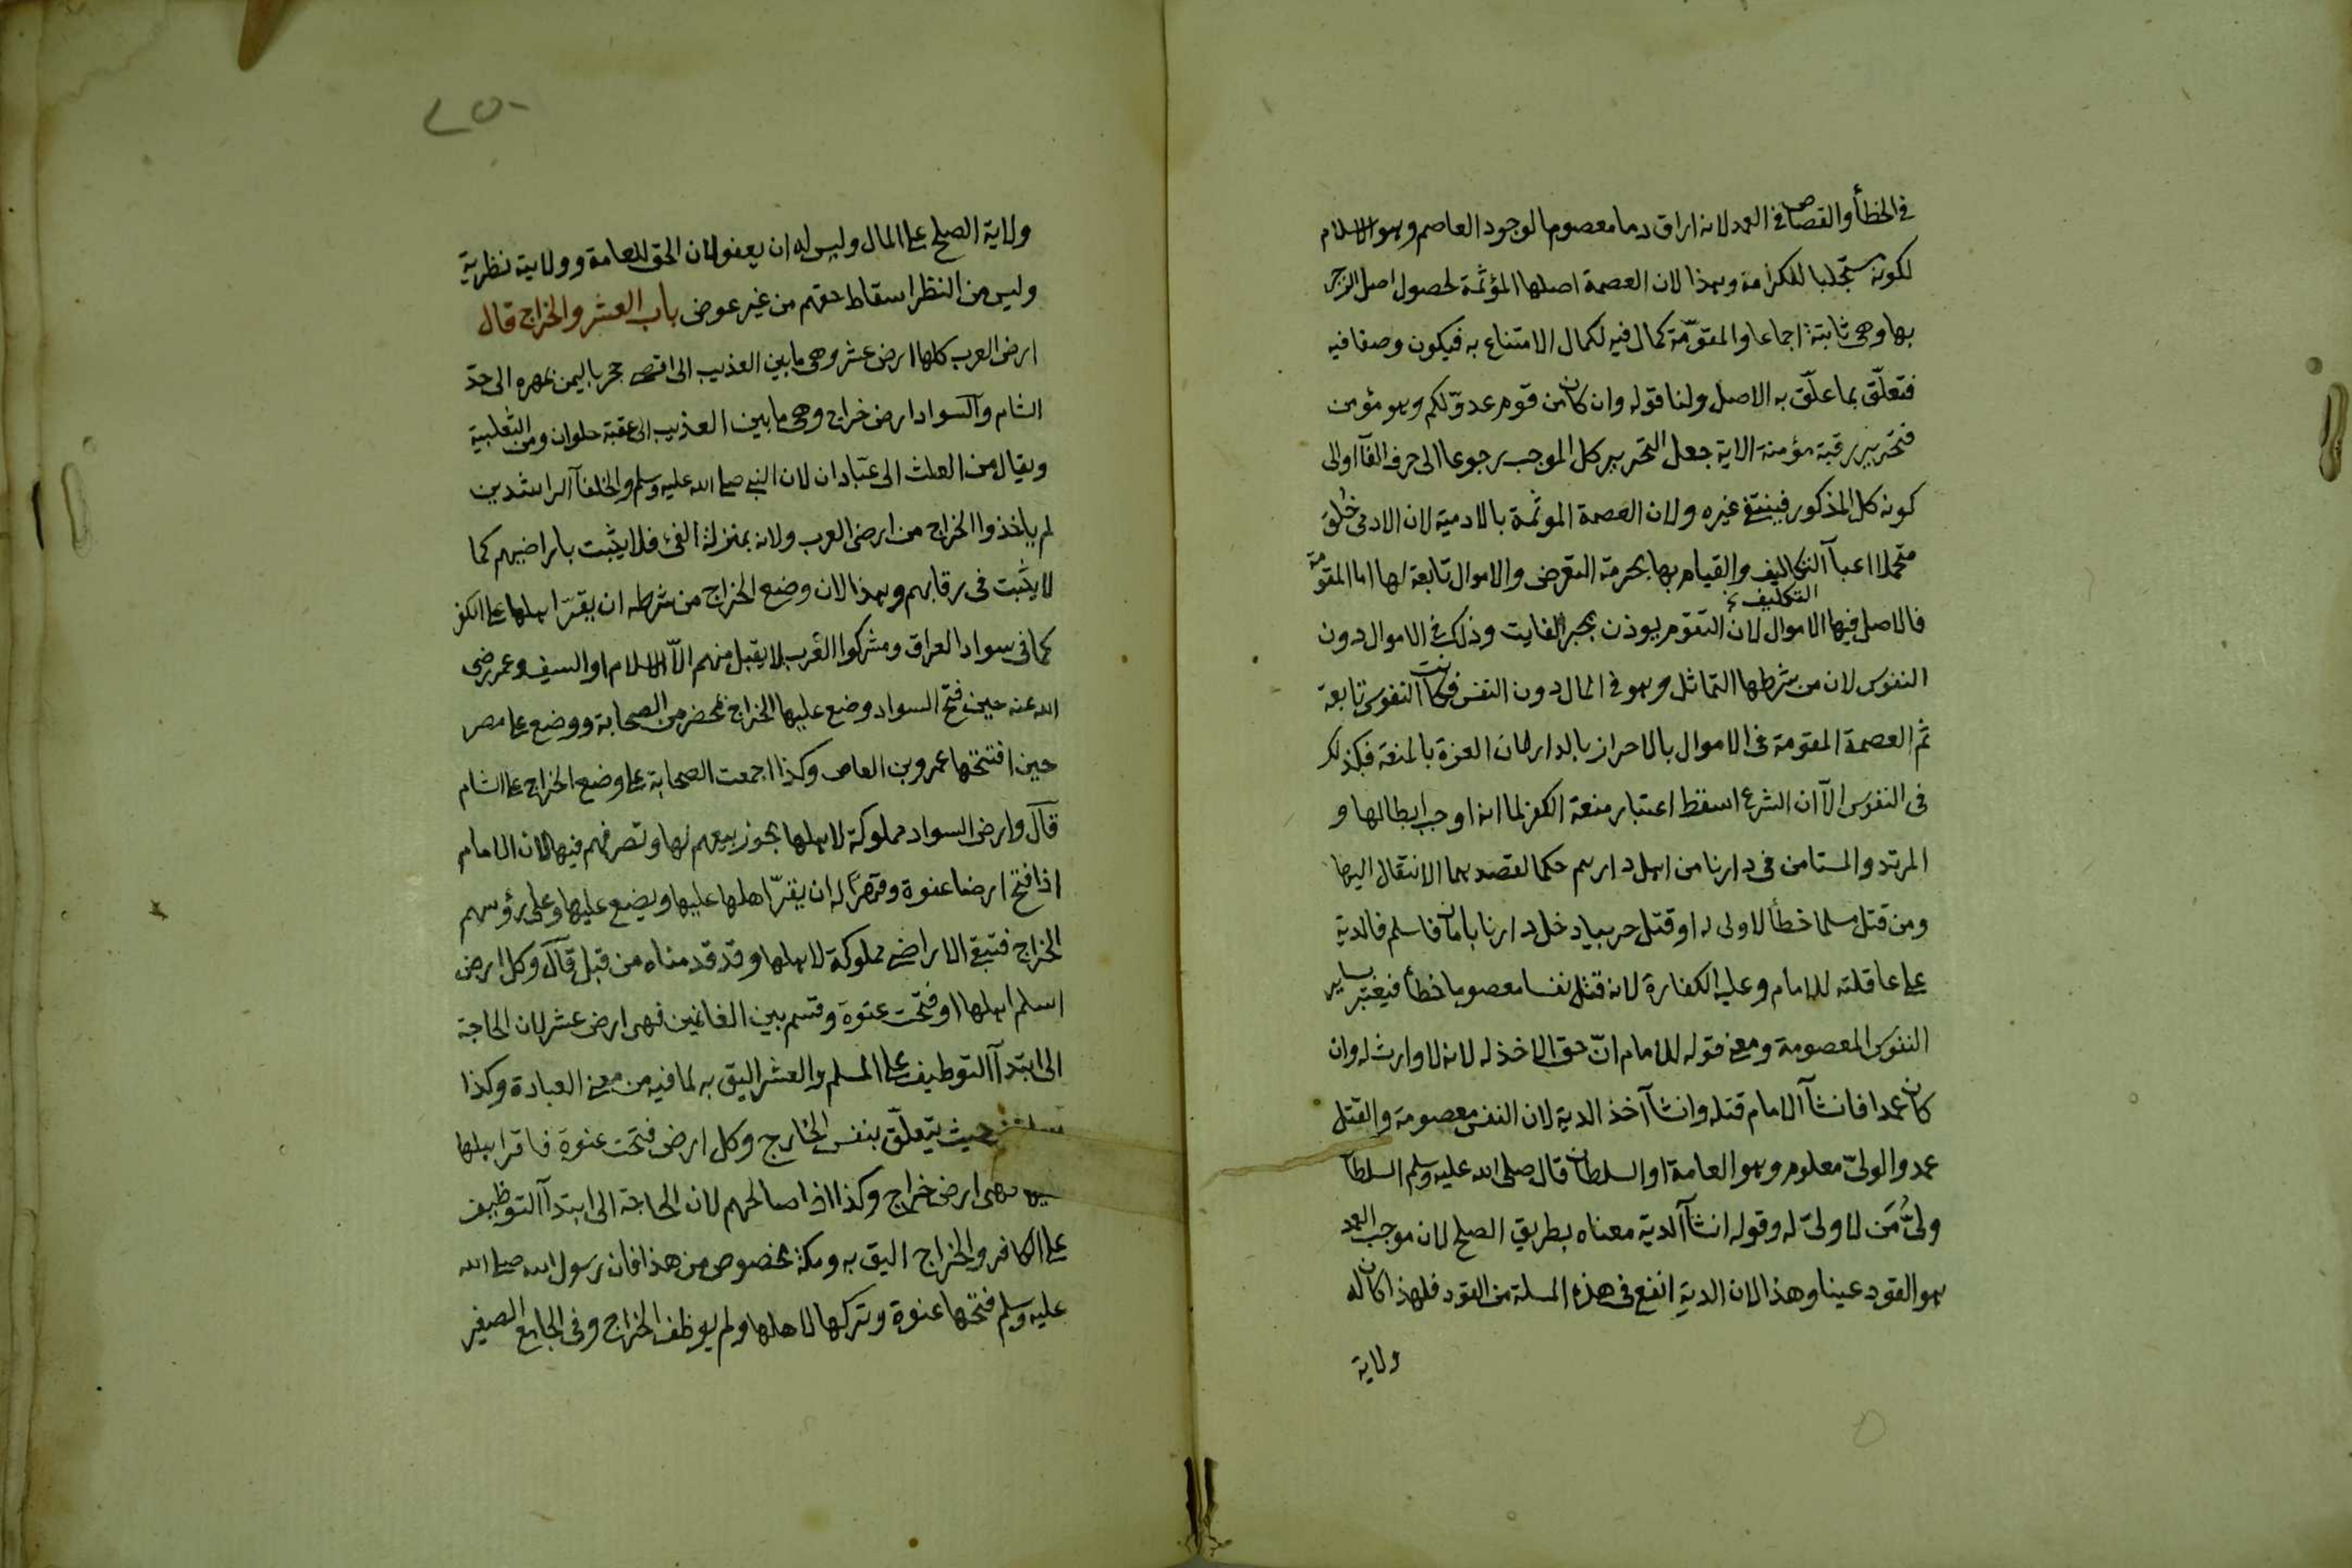 في الخطأ والقصاص في العمد لانه اراق دما معصوما لوجود العاصم وهو الاسلام
لكونه مستجلبا للكرامة وهذا لان العصمة اصلها المؤثمة لحصول اصل الزجر
بها وهى ثابتة اجماعا والمقوّمة كمال فيه لكمال الامتناع به فيكون وصفا فيه
فتعلّق بما علّق به الاصل ولنا قوله وان كان من قوم عدوّ لكم وهو مؤمن
فتحرير رقبة مؤمنة الاية جعل التحرير كل الموجب رجوعا الى حرف الفآ او الى
كونه كل المذكور فينتفي غيره ولان العصمة الموثمة بالادمية لان الادمى خُلِقَ
متحملا اعبآ التكاليف والقيام بها بحرمة التعرض والاموال تابعة لها اما المقومة
التكليف
فالاصل فيها الاموال لان التقوم يوذن بجبر الفايت وذلك في الاموال دون
النفوس لان من شرطها التماثل وهو في المال دون النفس فكانت النفوس تابعة
ثم العصمة المقومة في الاموال بالاحراز بالدار لان العزة بالمنعة فكذلك
في النفوس الّا ان الشرع اسقط اعتبار منعة الكفر لما انه اوجب ابطالها و
المرتد والمستامن في دارنا من اهل دارهم حكما لقصدهما الانتقال اليها
ومن قتل مسلما خطأ لا ولى له او قتل حربيا دخل دارنا بامان فاسلم فالدية
على عاقلته للامام وعليه الكفارة لانه قتل نفسا معصوما خطأ فيعتبر بساير
النفوس المعصومة ومعنى قوله للامام انّ حق الاخذ له لانه لا وارث له وان
كان عمدا فان شآ الامام قتله وان شآ آخذ الدية لان النفس معصومة والقتل
عمد والولىّ معلوم وهو العامة او السلطان قال صلى الله عليه وسلم السلطان
ولىُّ مَن لا ولىّ له وقوله ان شآ الدية معناه بطريق الصلح لان موجب العمد
هو القود عينا وهذا لان الدية انفع في هذه المسلة من القود فلهذا كان له
ولاية
ولاية الصلح على المال وليس له ان يعفو لان الحق للعامة وولايته نظرية
وليس من النظر اسقاط حقهم من غير عوض باب العشر والخراج قال
ارض العرب كلها ارض عشر وهى ما بين العذيب الى اقصى حجر باليمن بمهره الى حدّ
الشام والسواد ارض خراج وهى ما بين العذيب الى عقبة حلوان ومن الثعلبية
ويقال من العلث الى عبّادان لان النبي صلى الله عليه وسلم والخلفآ الراشدين
لم ياخذوا الخراج من ارض العرب ولانه بمنزلة الفئ فلا يثبت باراضيهم كما
لا يثبت في رقابهم وهذا لان وضع الخراج من شرطه ان يقرّ اهلها على الكفر
كما في سواد العراق ومشركوا العرب لا يقبل منهم الّا الاسلام او السيف وعمر رضى
الله عنه حين فتح السواد وضع عليها الخراج بمحضر من الصحابة ووضع على مصر
حين افتتحها عمرو بن العاص وكذا اجمعت الصحابة على وضع الخراج على الشام
قال وارض السواد مملوكة لاهلها يجوز بيعهم لها وتصرفهم فيها لان الامام
اذا فتح ارضا عنوة وقهرًا له ان يقرّ اهلها عليها ويضع عليها وعلى رؤسهم
الخراج فتبقى الاراضى مملوكة لاهلها وقد قدمناه من قبل قال وكل ارض
اسلم اهلها او فتحت عنوة وقسم بين الغانمين فهى ارض عشر لان الحاجة
الى ابتدآ التوظيف على المسلم والعشر اليق به لما فيه من معنى العبادة وكذا
حيث يتعلّق بنفس الخارج وكل ارض فتحت عنوة فاقر اهلها
فهى ارض خراج وكذا اذا صالحهم لان الحاجة الى ابتدآ التوظيف
على الكافر والخراج اليق به ومكة مخصوص من هذا فان رسول الله صلى الله
عليه وسلم فتحها عنوة وتركها لاهلها ولم يوظف الخراج وفى الجامع الصغير